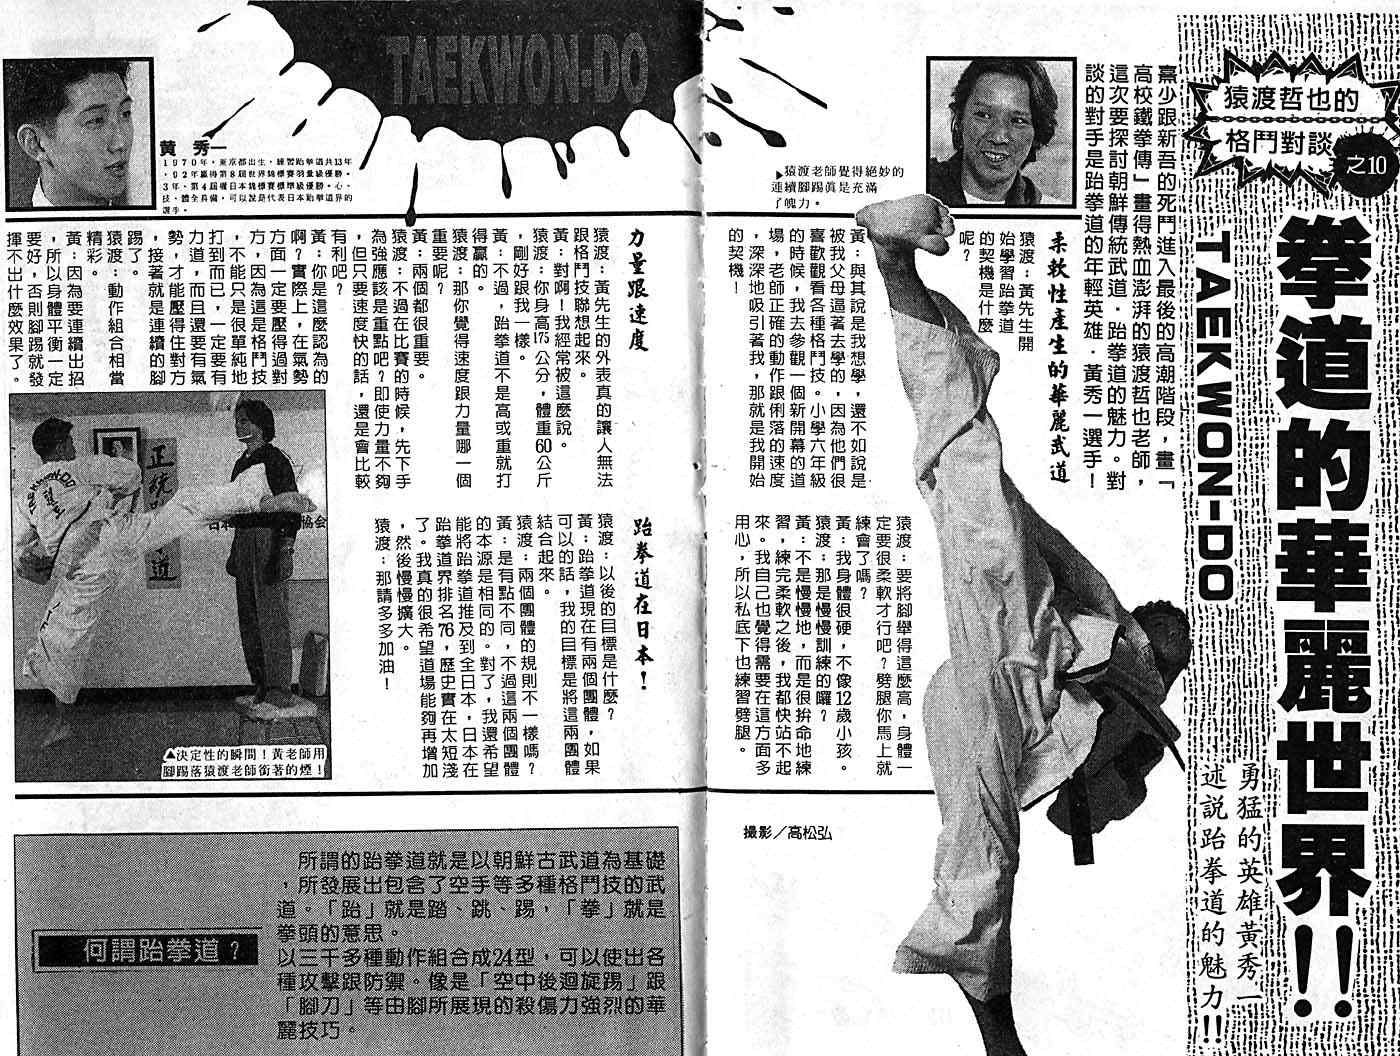 猿渡哲也的
格鬥對談
之10
拳道的華麗世界!!
TAEKWON-DO
勇猛的英雄黃秀一
述說跆拳道的魅力!!
熹少跟新吾的死鬥進入最後的高潮階段，畫「
高校鐵拳傳」畫得熱血澎湃的猿渡哲也老師，
這次要探討朝鮮傳統武道．跆拳道的魅力。對
談的對手是跆拳道的年輕英雄．黃秀一選手！
▶猿渡老師覺得絕妙的
連續腳踢真是充滿
了魄力。
柔軟性產生的華麗武道
猿渡：黃先生開
始學習跆拳道
的契機是什麼
呢？
黃：與其說是我想學，還不如說是
被我父母逼著去學的，因為他們很
喜歡觀看各種格鬥技。小學六年級
的時候，我去參觀一個新開幕的道
場，老師正確的動作跟俐落的速度
，深深地吸引著我，那就是我開始
的契機！
猿渡：要將腳舉得這麼高，身體一
定要很柔軟才行吧？劈腿你馬上就
練會了嗎？
黃：我身體很硬，不像12歲小孩。
猿渡：那是慢慢訓練的囉？
黃：不是慢慢地，而是很拚命地練
習，練完柔軟之後，我都快站不起
來。我自己也覺得需要在這方面多
用心，所以私底下也練習劈腿。
撮影／高松弘
TAEKWON-DO
黃　秀一
1970年，東京都出生。練習跆拳道共13年
，92年贏得第8屆世界錦標賽羽量級優勝。
3年、第4屆權日本錦標賽標準級優勝。心、
技、體全具備，可以說是代表日本跆拳道界的
選手。
力量跟速度
猿渡：黃先生的外表真的讓人無法
跟格鬥技聯想起來。
黃：對啊！我經常被這麼說。
猿渡：你身高175公分，體重60公斤
，剛好跟我一樣。
黃：不過，跆拳道不是高或重就打
得贏的。
猿渡：那你覺得速度跟力量哪一個
重要呢？
黃：兩個都很重要。
猿渡：不過在比賽的時候，先下手
為強應該是重點吧？即使力量不夠
，但只要速度快的話，還是會比較
有利吧？
黃：你是這麼認為的
啊？實際上，在氣勢
方面一定要壓得過對
方，因為這是格鬥技
，不能只是很單純地
打到而已，一定要有
力道，而且還要有氣
勢，才能壓得住對方
，接著就是連續的腳
踢了。
猿渡：動作組合相當
精彩。
黃：因為要連續出招
，所以身體平衡一定
要好，否則腳踢就發
揮不出什麼效果了。
跆拳道在日本！
猿渡：以後的目標是什麼？
黃：跆拳道現在有兩個團體，如果
可以的話，我的目標是將這兩團體
結合起來。
猿渡：兩個團體的規則不一樣嗎？
黃：是有點不同，不過這兩個團體
的本源是相同的。對了，我還希望
能將跆拳道推及到全日本，日本在
跆拳道界排名76，歷史實在太短淺
了。我真的很希望道場能夠再增加
，然後慢慢擴大。
猿渡：那請多多加油！
▲決定性的瞬間！黃老師用
腳踢落猿渡老師銜著的煙！
何謂跆拳道？
所謂的跆拳道就是以朝鮮古武道為基礎
，所發展出包含了空手等多種格鬥技的武
道。「跆」就是踏、跳、踢，「拳」就是
拳頭的意思。
以三千多種動作組合成24型，可以使出各
種攻擊跟防禦。像是「空中後迴旋踢」跟
「腳刀」等由腳所展現的殺傷力強烈的華
麗技巧。